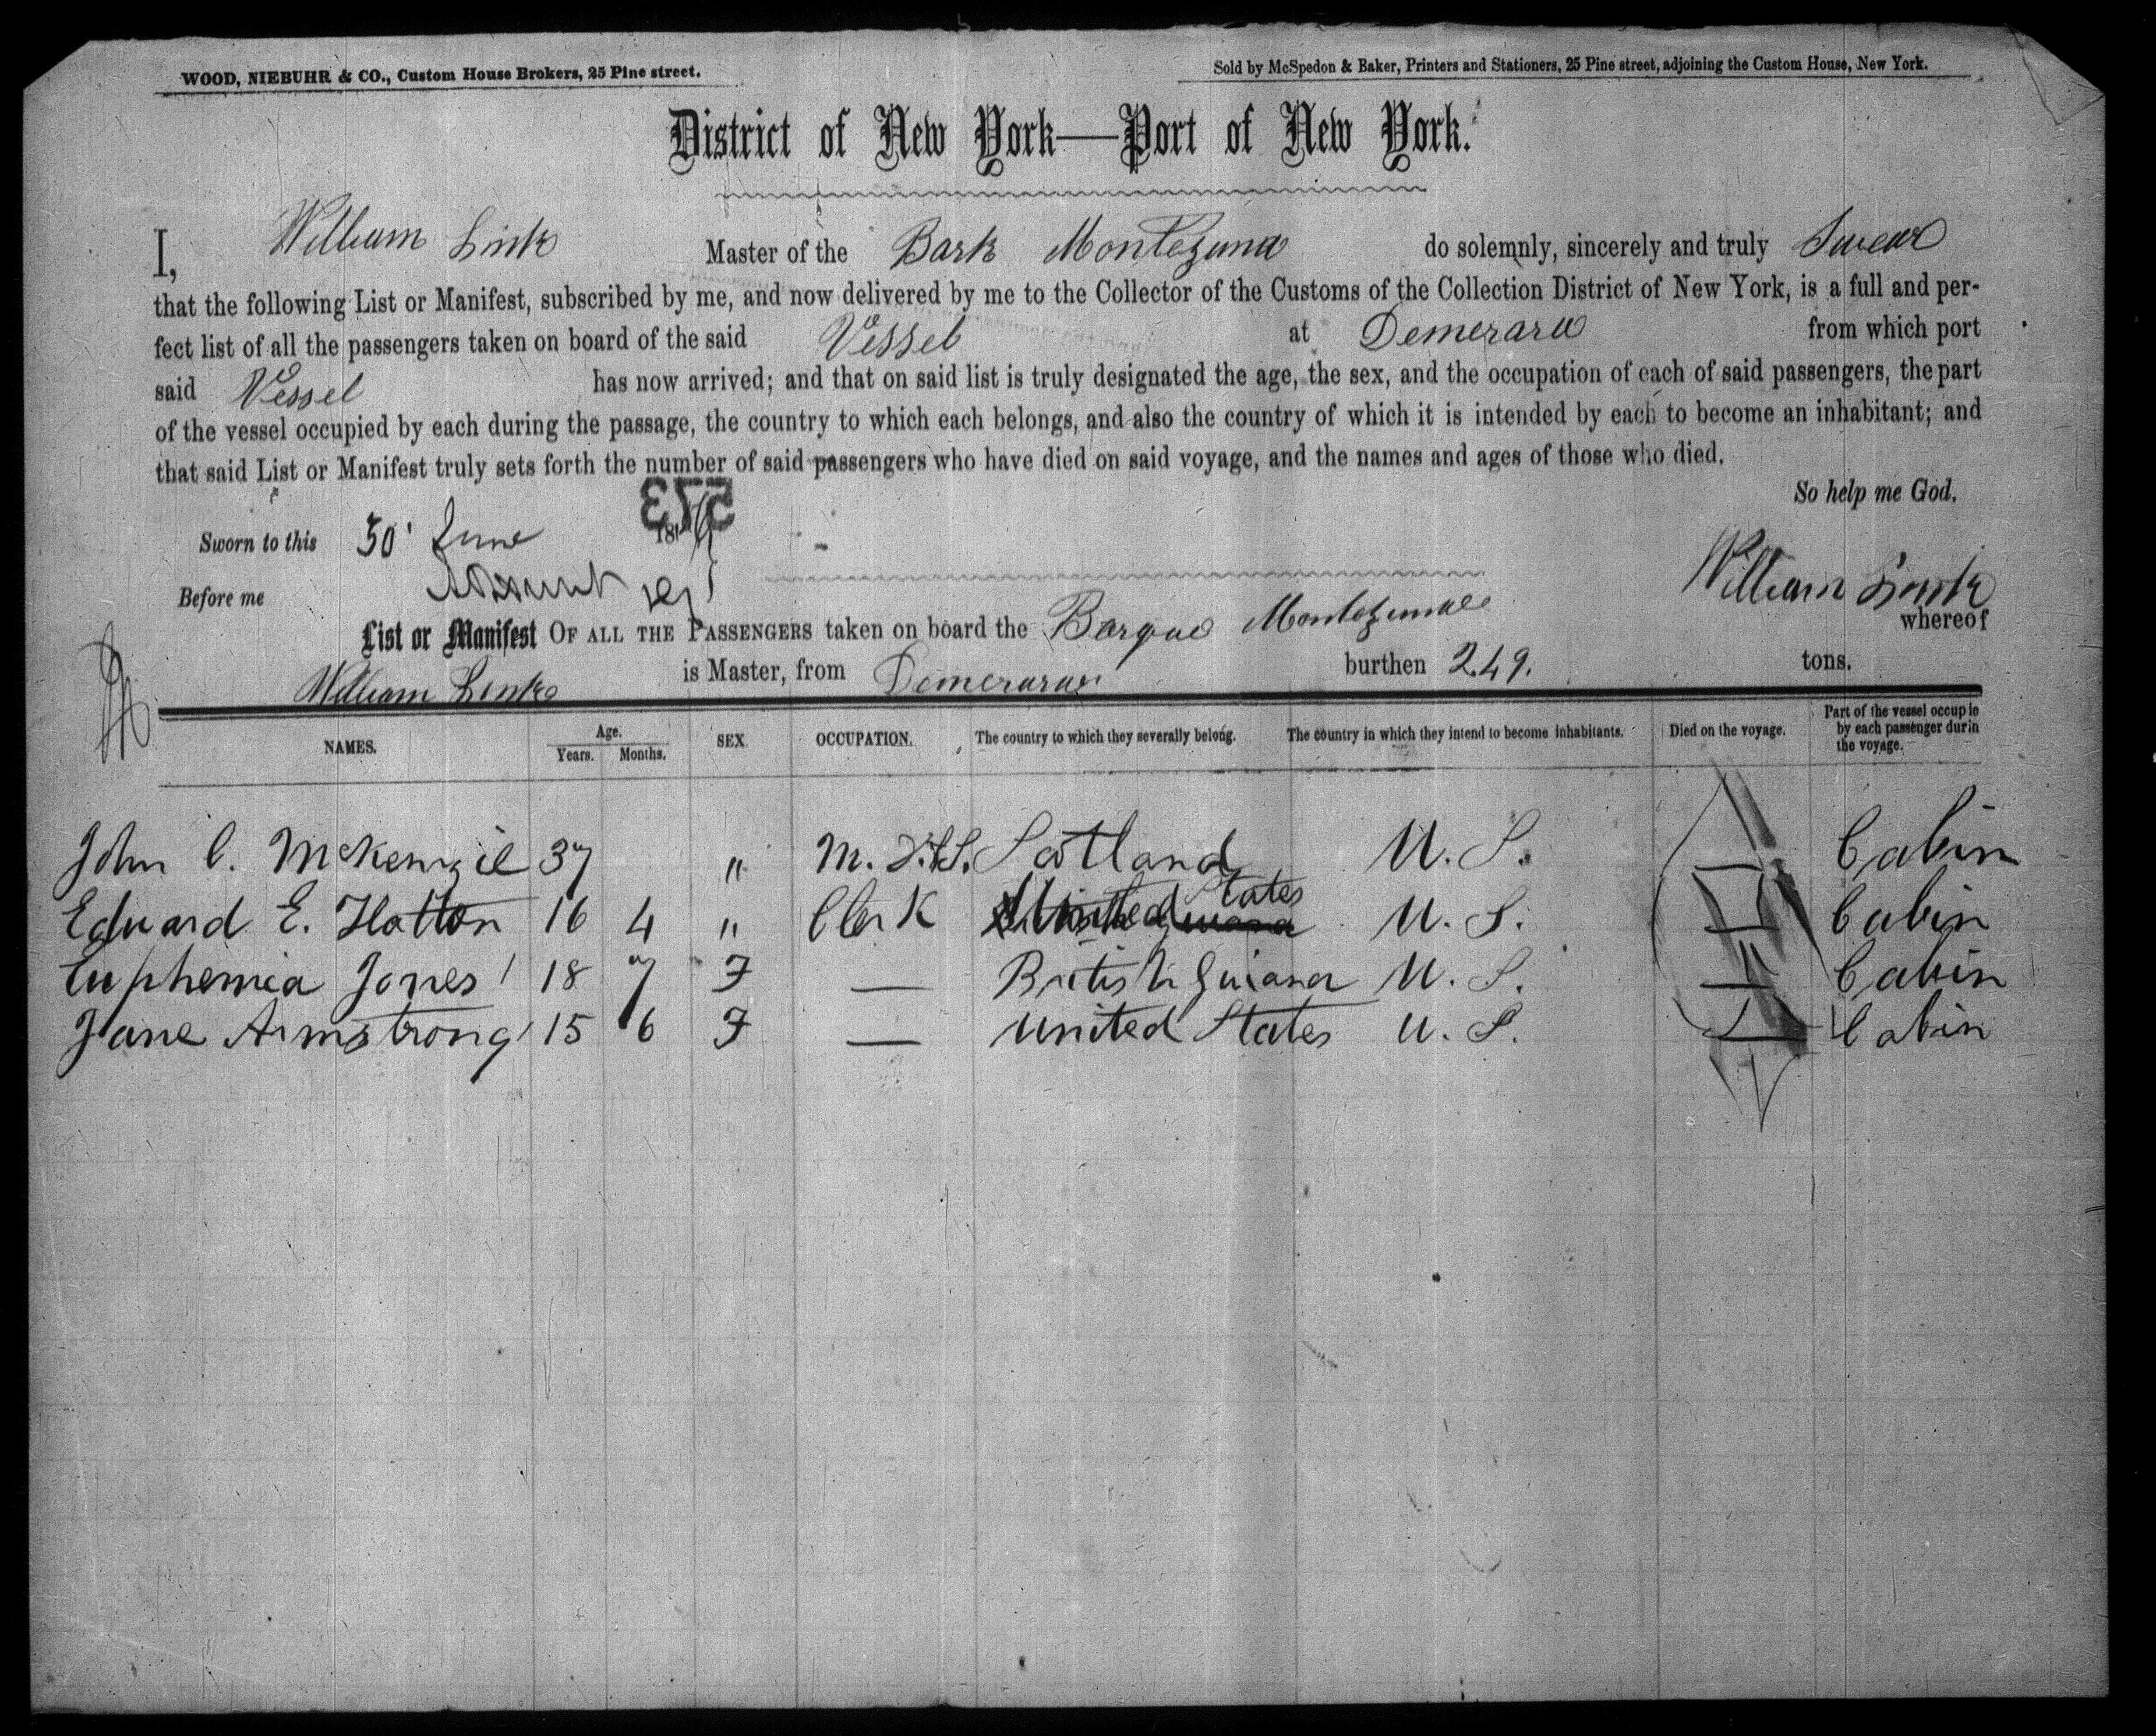 WOOD, NIEBUHR & CO., Custom House Brokers, 25 Pine street.
Sold by McSpedon & Baker, Printers and Stationers, 25 Pine street, adjoining the Custom House, New York.
District of New York—Port of New York.
I, William Link Master of the Bark Montezuma do solemnly, sincerely and truly Swear
that the following List or Manifest, subscribed by me, and now delivered by me to the Collector of the Customs of the Collection District of New York, is a full and per-
fect list of all the passengers taken on board of the said Vessel at Demerara from which port
said Vessel has now arrived; and that on said list is truly designated the age, the sex, and the occupation of each of said passengers, the part
of the vessel occupied by each during the passage, the country to which each belongs, and also the country of which it is intended by each to become an inhabitant; and
that said List or Manifest truly sets forth the number of said passengers who have died on said voyage, and the names and ages of those who died.
So help me God.
573
Sworn to this 30 June 18
Before me
William Link
List or Manifest OF ALL THE PASSENGERS taken on board the Barque Montezuma whereof
William Link is Master, from Demerara burthen 249. tons.
NAMES. Age. Years. Months. SEX. OCCUPATION. The country to which they severally belong. The country in which they intend to become inhabitants. Died on the voyage. Part of the vessel occupie by each passenger durin the voyage.
John C. McKenzie 37 " M. Scotland U. S. Cabin
Edward E. Hatton 16 4 " Clerk United States U. S. Cabin
Euphemia Jones 18 7 F — British Guiana U. S. Cabin
Jane Armstrong 15 6 F — United States U. S. Cabin